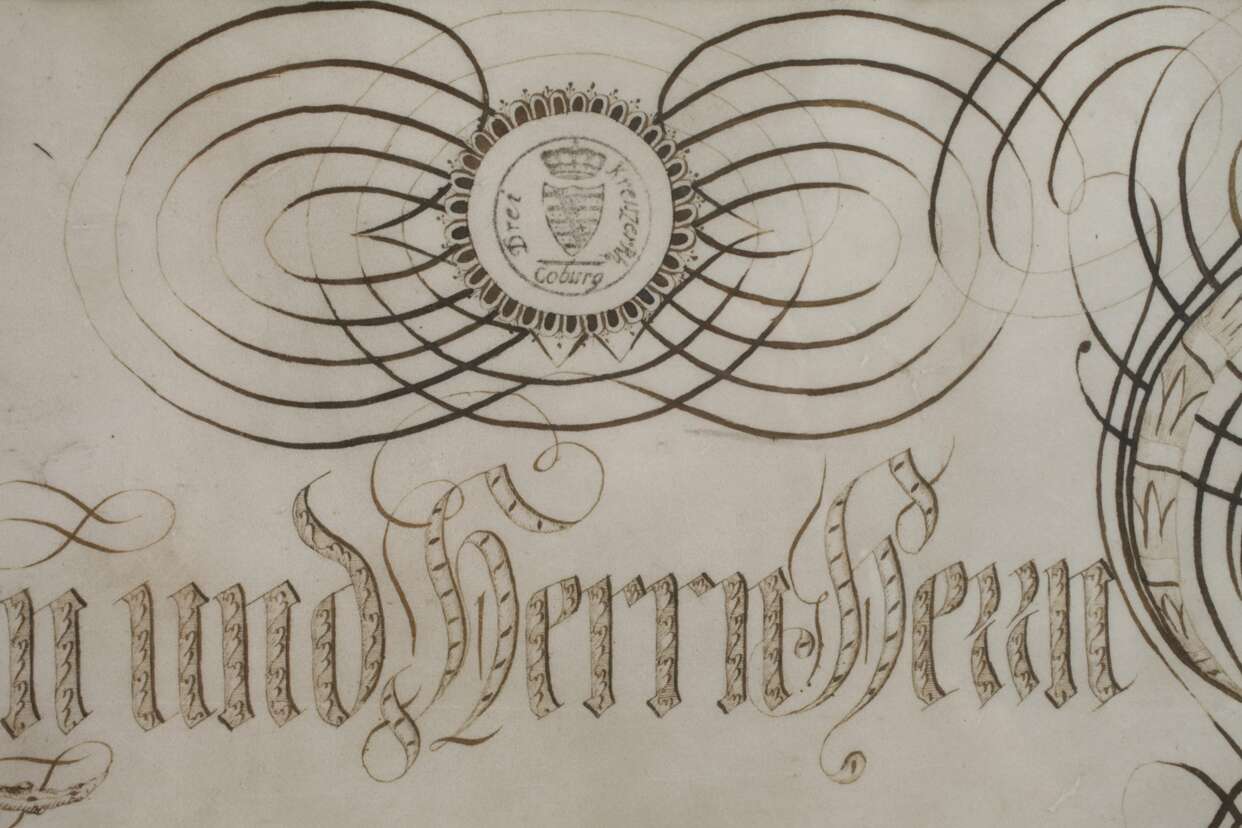 Drei Kreuzer
Coburg
n und Herrn Herrn